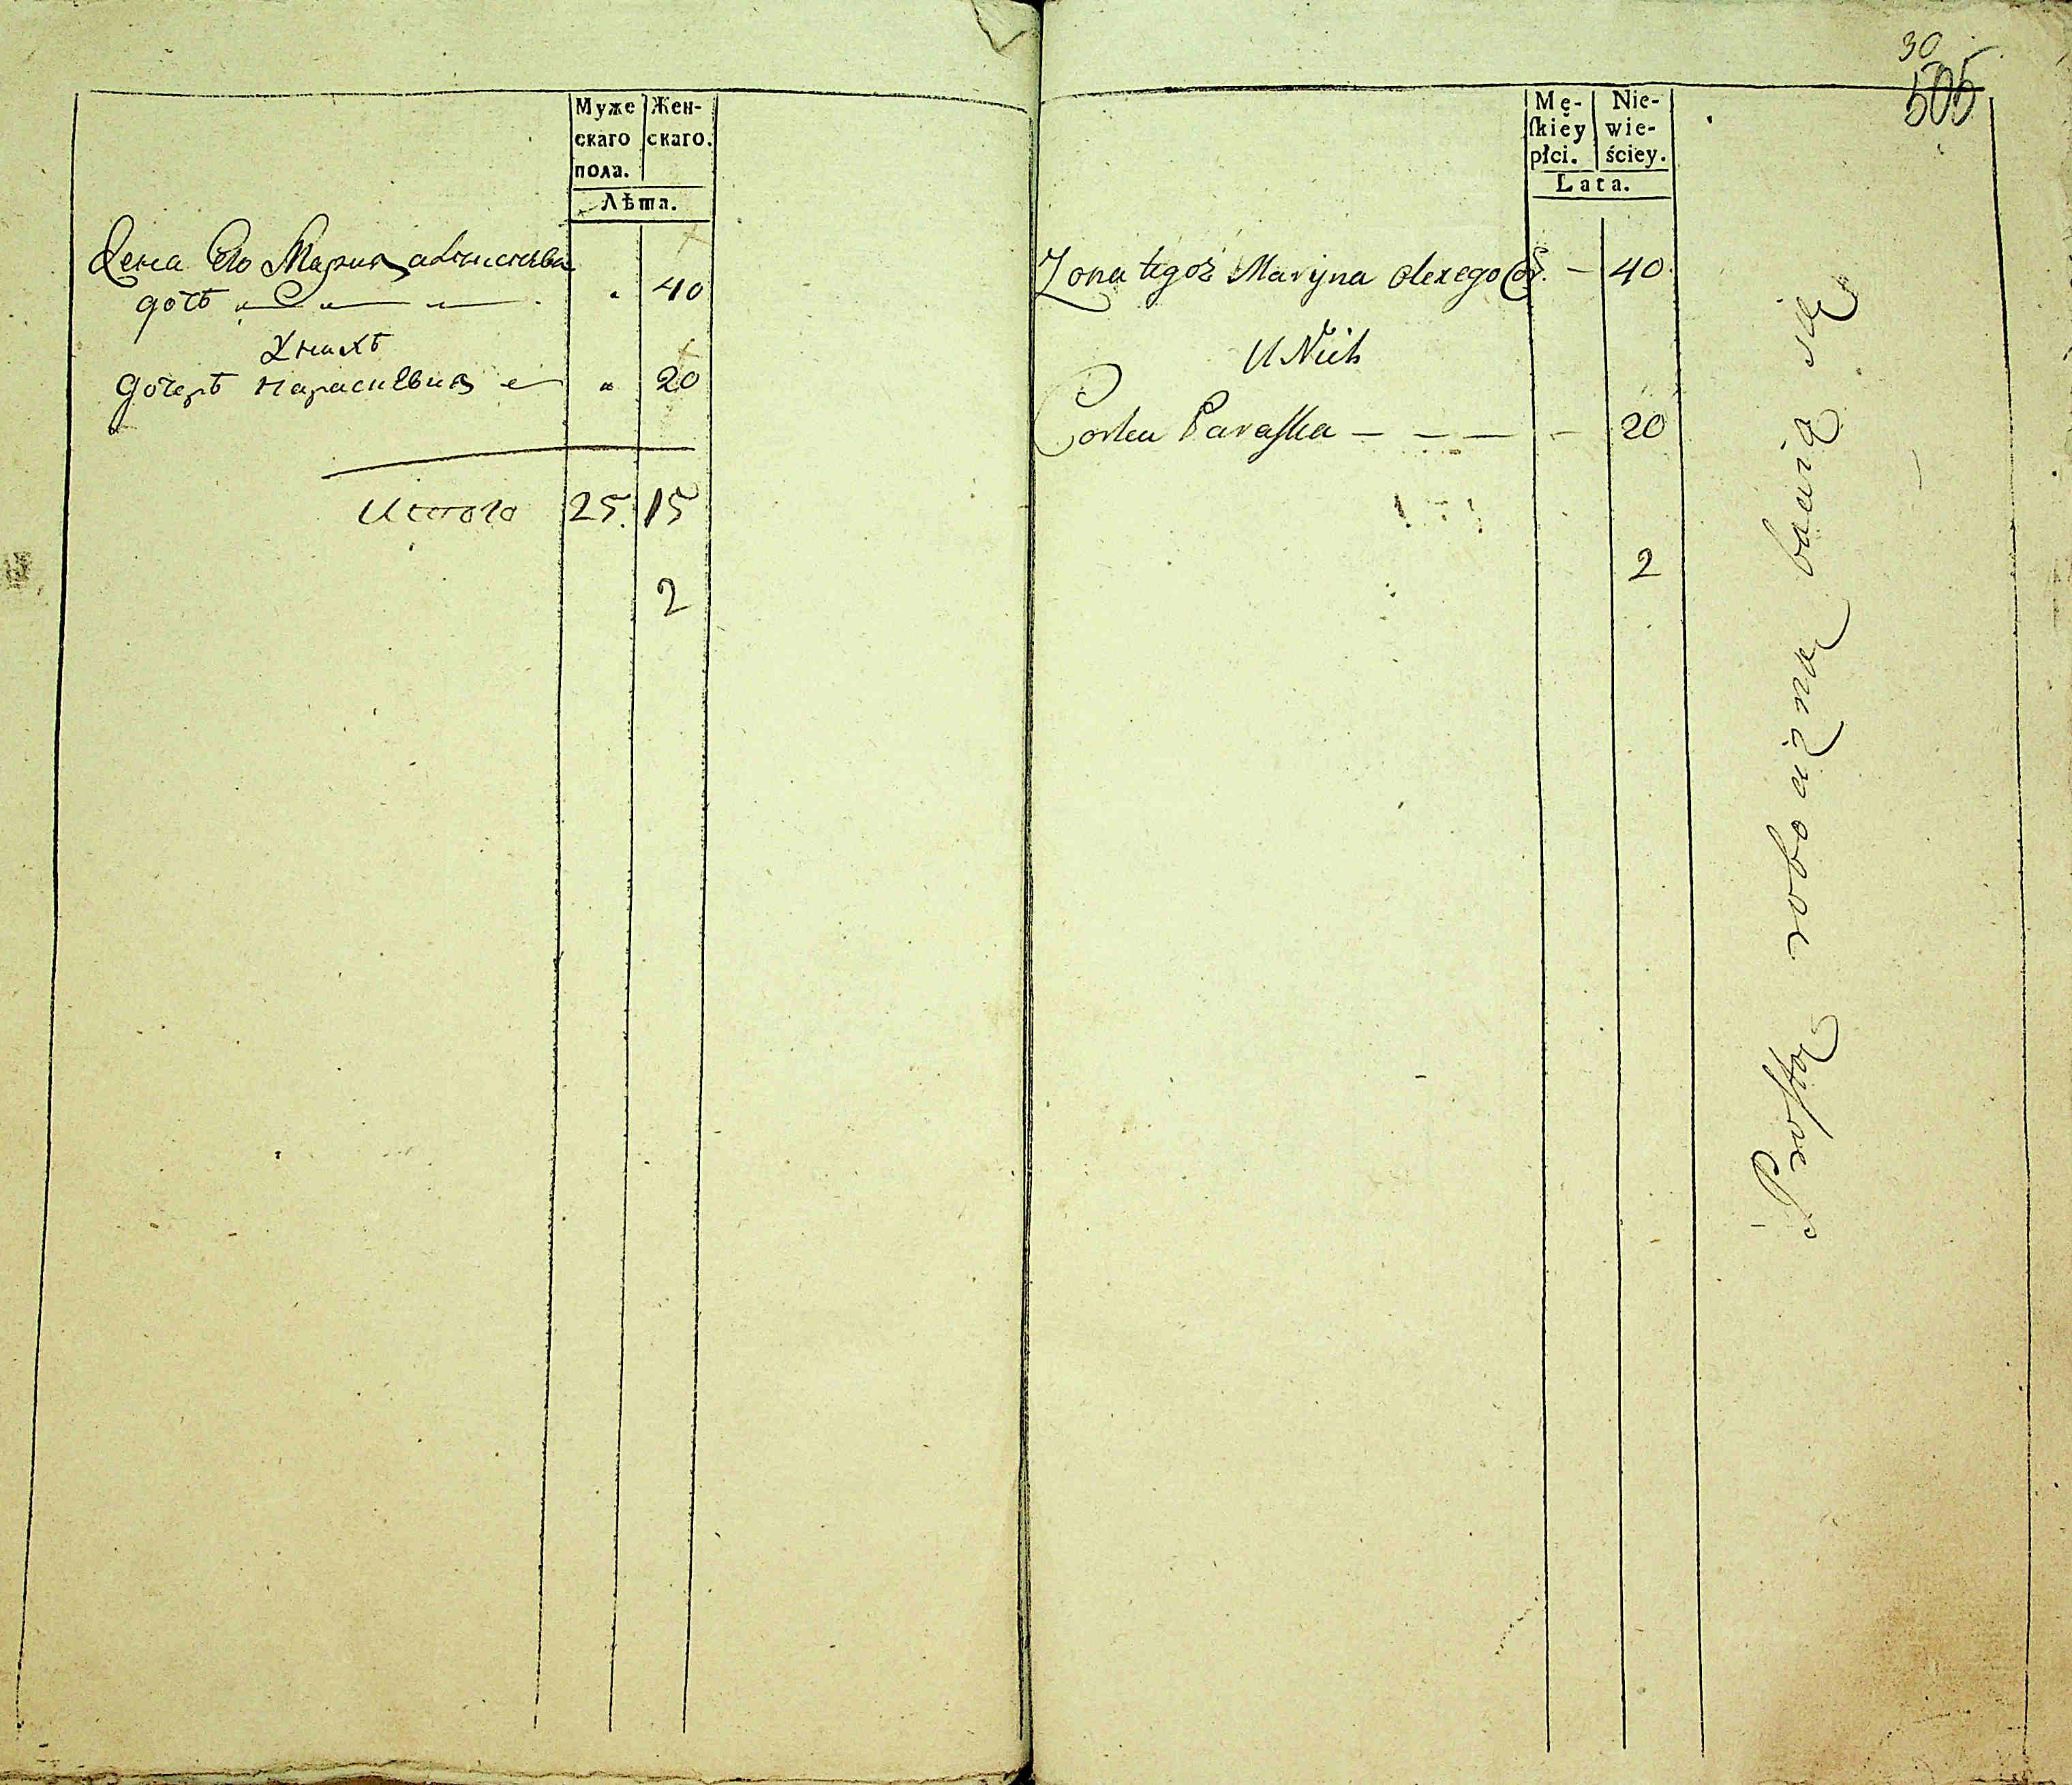 Муже
скаго
пола.
Жен-
скаго.
Лѣта.
Жена Его Марина алексѣева
дочь
40
У нихъ
дочерь парасковия
20
Итого 25. 15
2
30
505
Mę-
ſkiéy
płci.
Nie-
wie-
ściey.
Lata.
Zona tegoż Maryna Olexego Cor. — 40
U Nich
Corka Paraſka — — — — 20
2
Proſtą robocizną bawią się